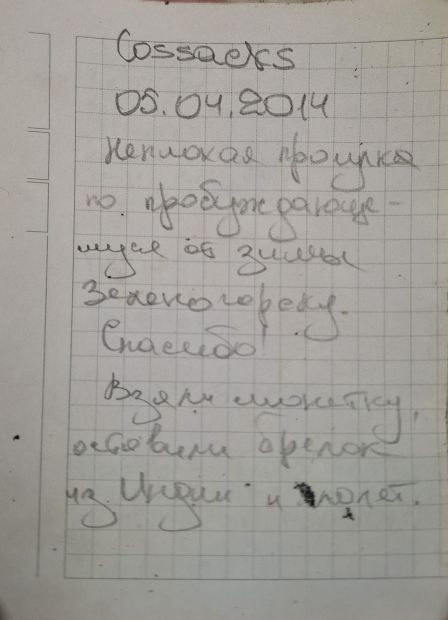 Cossacks
05.04.2014
Неплохая прогулка
по пробуждающе-
муся от зимы
Зеленогорску.
Спасибо!
Взяли монетку,
оставили брелок
из Индии и